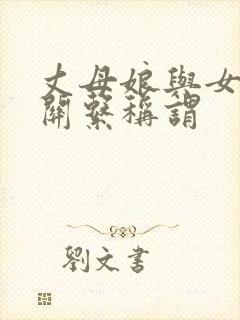 丈母娘與女
關繫稱謂
劉文書